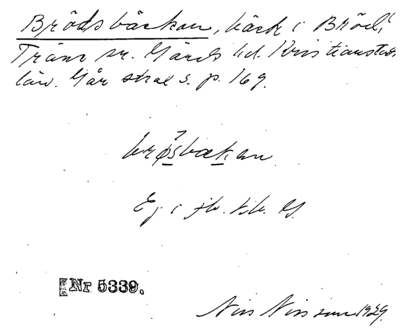 Brödsbäckan, bäck i Bröd,
Träne sn. Gärds hd. Kristianstads
län. Går s. p. 169.
brøsbækan
Ej i jb.
Nr 5339.
Nils Nilsson 1929.